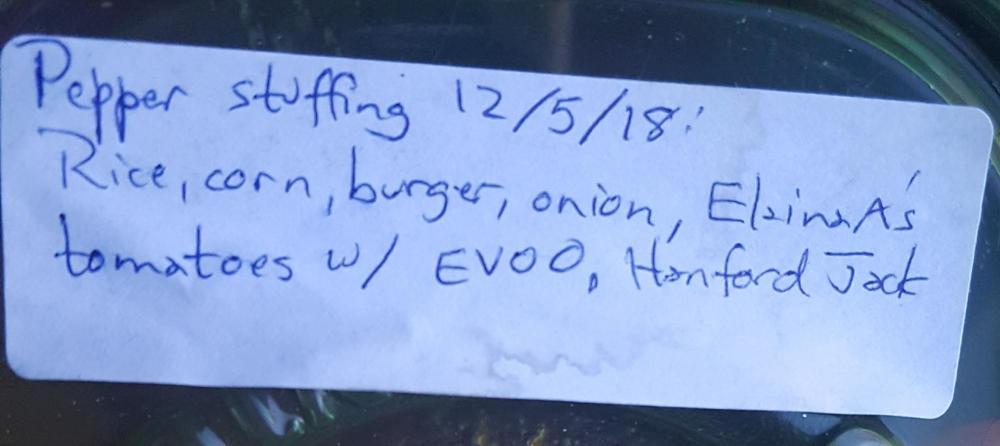 Pepper stuffing 12/5/18:
Rice, corn, burger, onion, Elaina A's
tomatoes w/ EVOO, Hanford Jack